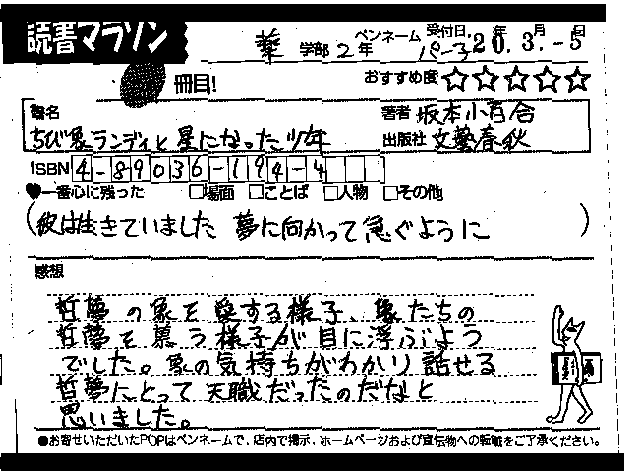 読書マラソン
薬 学部 2 年 ペンネーム パーコ 受付日 20年.3月.-5日
冊目! おすすめ度 ☆☆☆☆☆
書名 著者 坂本小百合
ちび象ランディと星になった少年 出版社 文藝春秋
ISBN 4-89036-194-4
♥一番心に残った □場面 □ことば □人物 □その他
(彼は生きていました 夢に向かって急ぐように)
感想
哲夢の象を愛する様子、象たちの
哲夢を慕う様子が目に浮ぶよう
でした。象の気持ちがわかり話せる
哲夢にとって天職だったのだなと
思いました。
●お寄せいただいたPOPはペンネームで、店内で掲示、ホームページおよび宣伝物への転載をご了承ください。